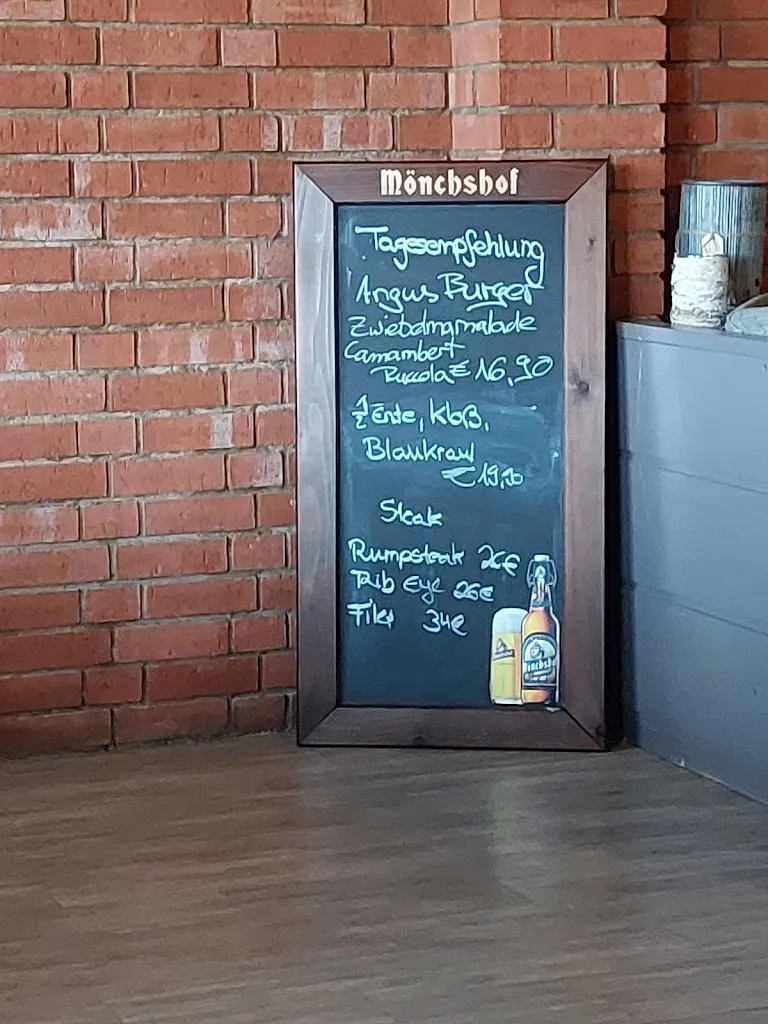 Mönchshof
Tagesempfehlung
Angus Burger
Zwiebelmarmalade
Camambert
Ruccola € 16,90
1/2 Ente, Kloß,
Blaukraut
€ 19,90
Steak
Rumpsteak 26€
Rib Eye 26€
Filet 34€
Mönchshof